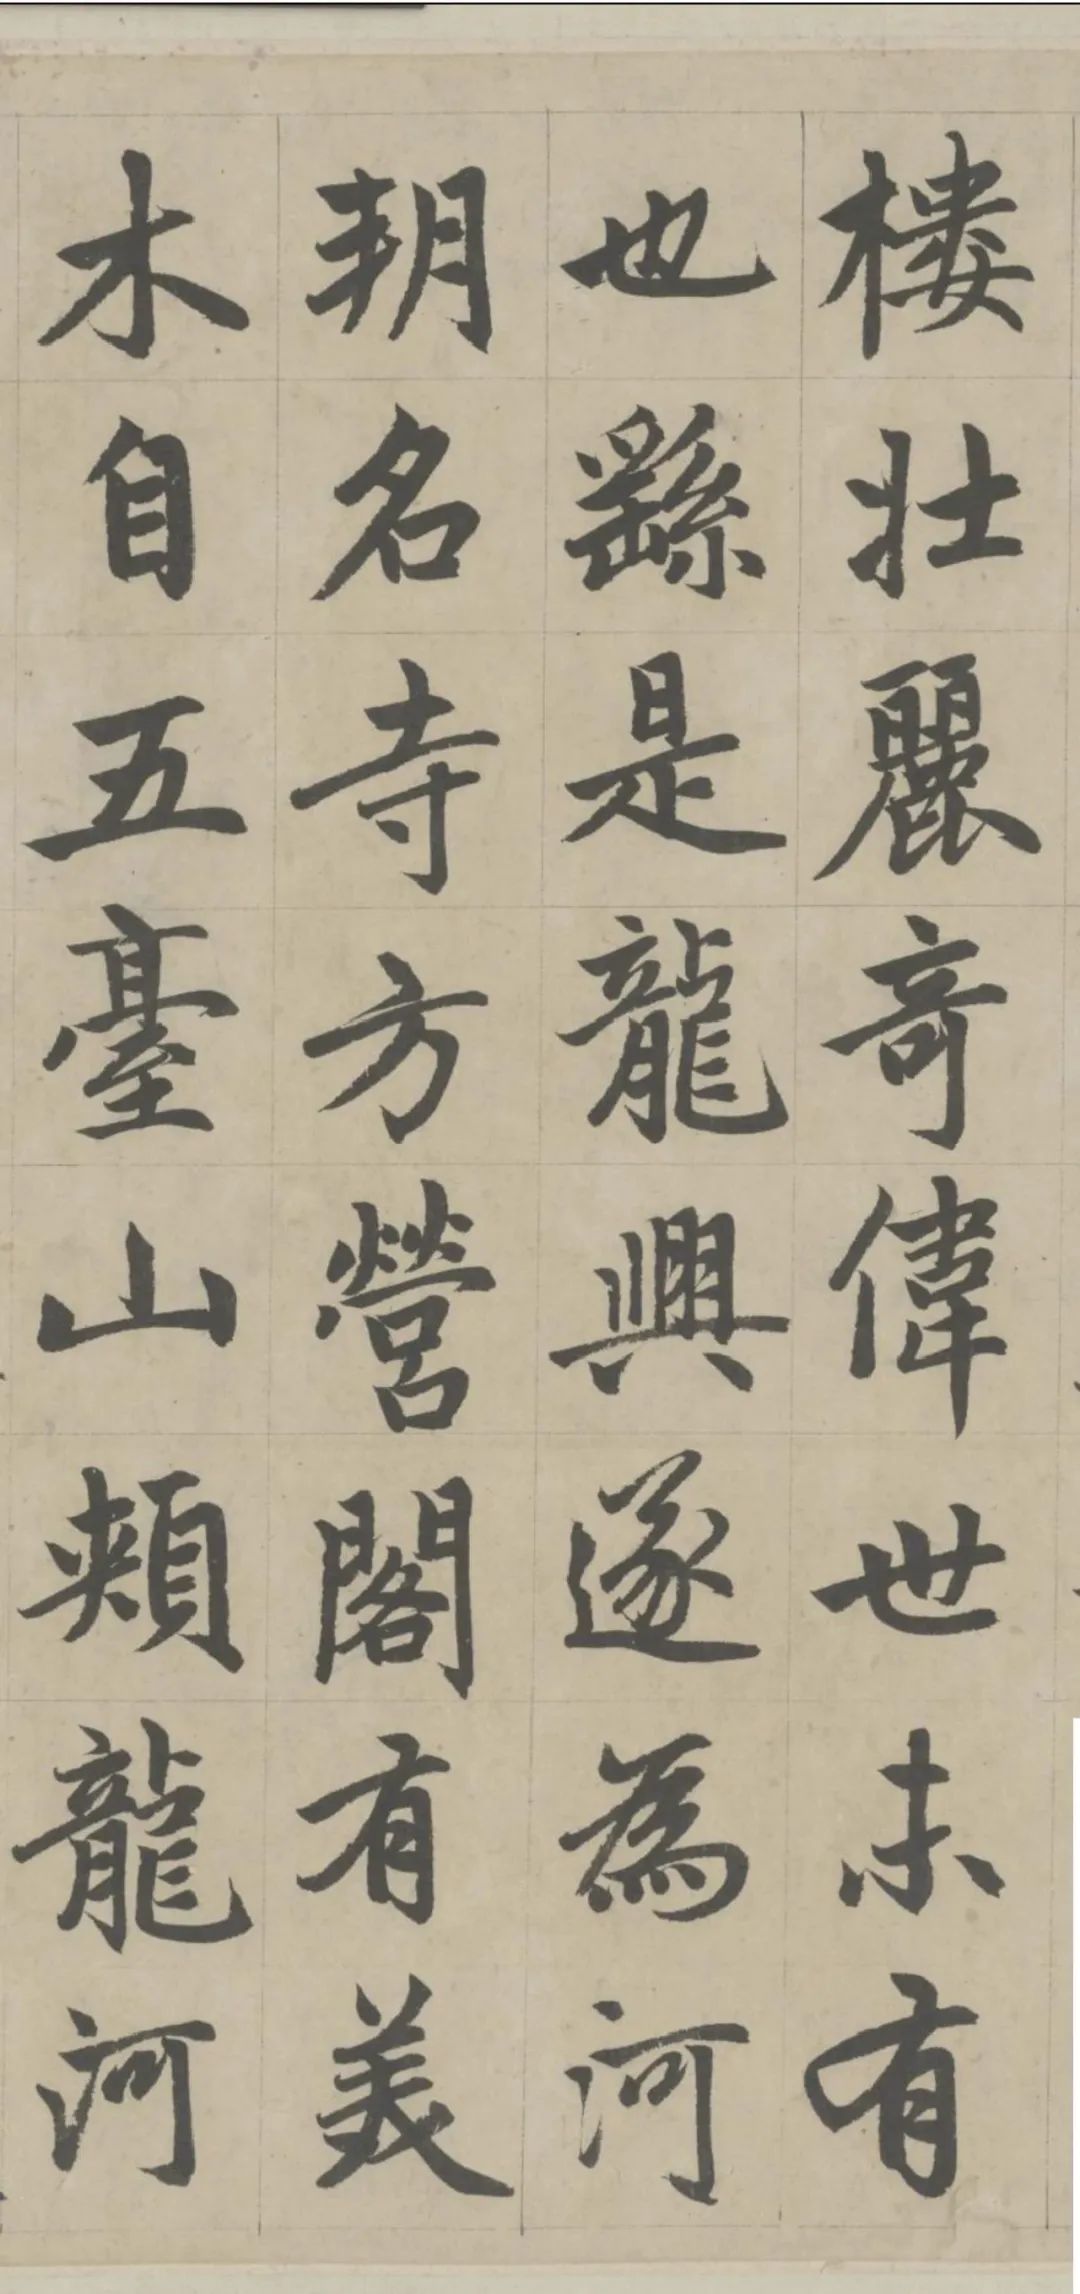 樓壯麗竒偉世未有
也繇是龍興遂為河
朔名寺方營閣有美
木自五臺山頰龍河